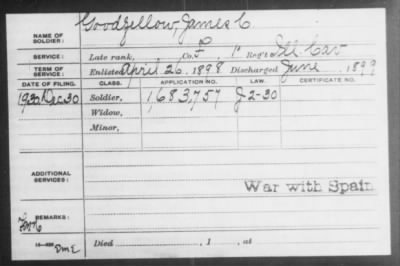 Goodfellow, James C
NAME OF SOLDIER:
SERVICE: Late rank, Co. 1 Reg't Ill Cav
TERM OF SERVICE: Enlisted April 26, 1898 Discharged June, 1899
DATE OF FILING. CLASS. APPLICATION NO. LAW. CERTIFICATE NO.
1930 Dec 30 Soldier, 1,683,757 J 2-30
Widow,
Minor,
ADDITIONAL SERVICES:
War with Spain
REMARKS:
Died , 1 , at